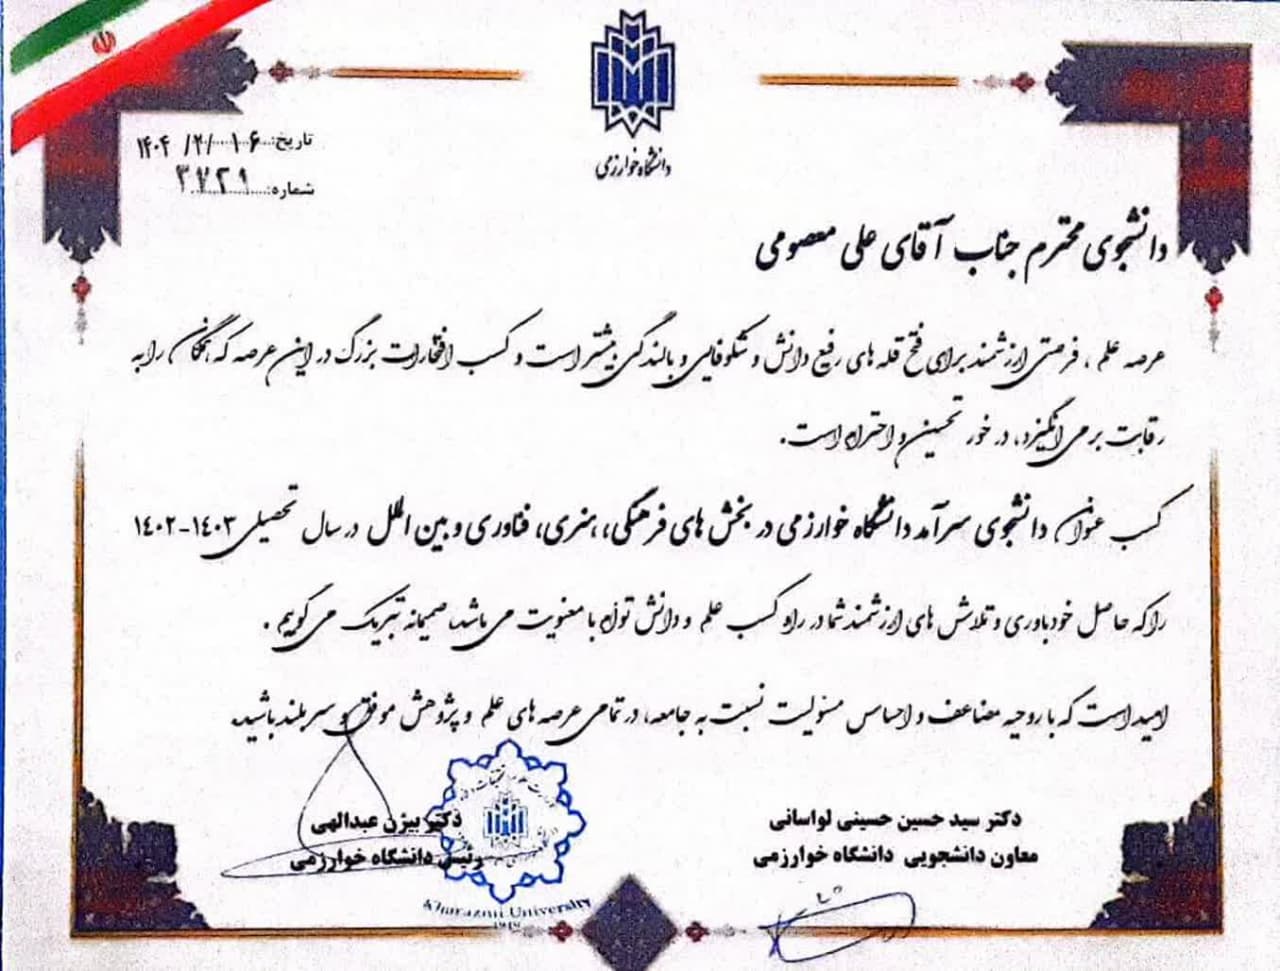 دانشگاه خوارزمی
تاریخ: ۱۴۰۴/۲/۱۶
شماره: ۳۷۲۹
دانشجوی محترم جناب آقای علی معصومی
عرصه علم، فرصتی ارزشمند برای فتح قله های رفیع دانش و شکوفایی و بالندگی بیشتر است و کسب افتخارات بزرگ در این عرصه که همگان را به
رقابت بر می انگیزد، در خور تحسین و احترام است.
کسب عنوان دانشجوی سرآمد دانشگاه خوارزمی در بخش های فرهنگی، هنری، فناوری و بین الملل در سال تحصیلی ۱۴۰۳-۱۴۰۲
را که حاصل خودباوری و تلاش های ارزشمند شما در راه کسب علم و دانش توأم با معنویت می باشد، صمیمانه تبریک می گویم.
امید است که با روحیه مضاعف و احساس مسئولیت نسبت به جامعه، در تمامی عرصه های علم و پژوهش موفق و سربلند باشید.
دکتر سید حسین حسینی لواسانی
معاون دانشجویی دانشگاه خوارزمی
دکتر بیژن عبدالهی
رئیس دانشگاه خوارزمی
Kharazmi University
1919